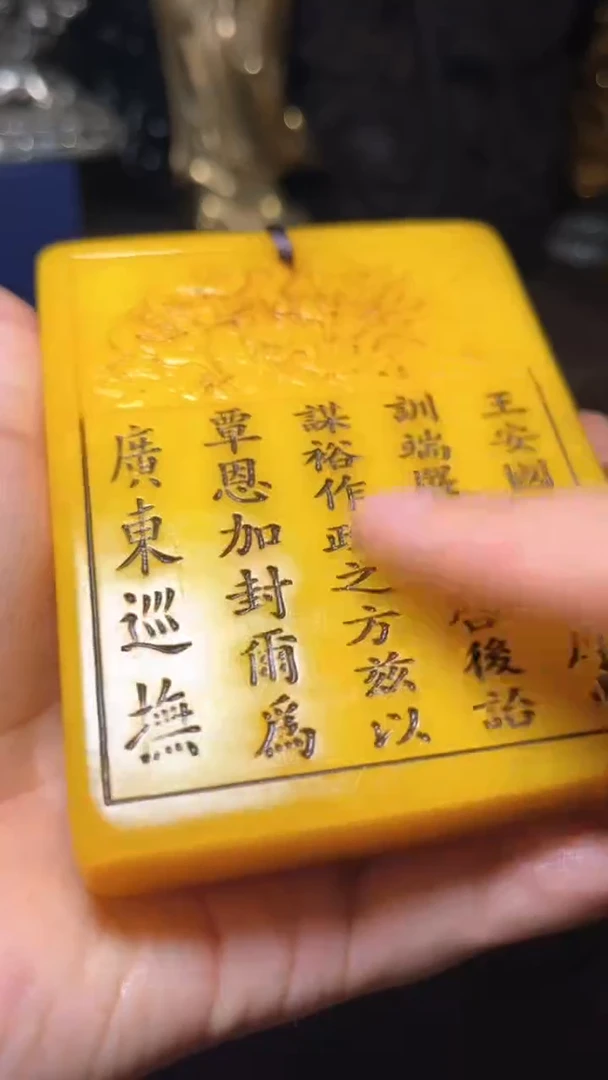 王安國
訓端 後詒
謀裕作政之方茲以
覃恩加封爾爲
廣東巡撫